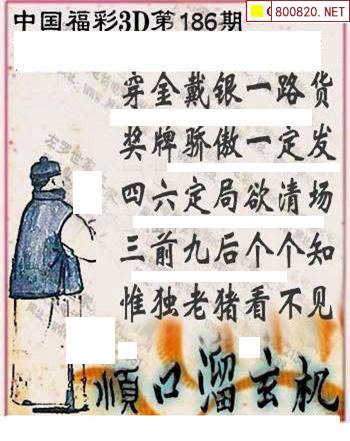 800820.NET
中国福彩3D第186期
穿金戴银一路货
奖牌骄傲一定发
四六定局欲清场
三前九后个个知
惟独老猪看不见
順口溜玄机